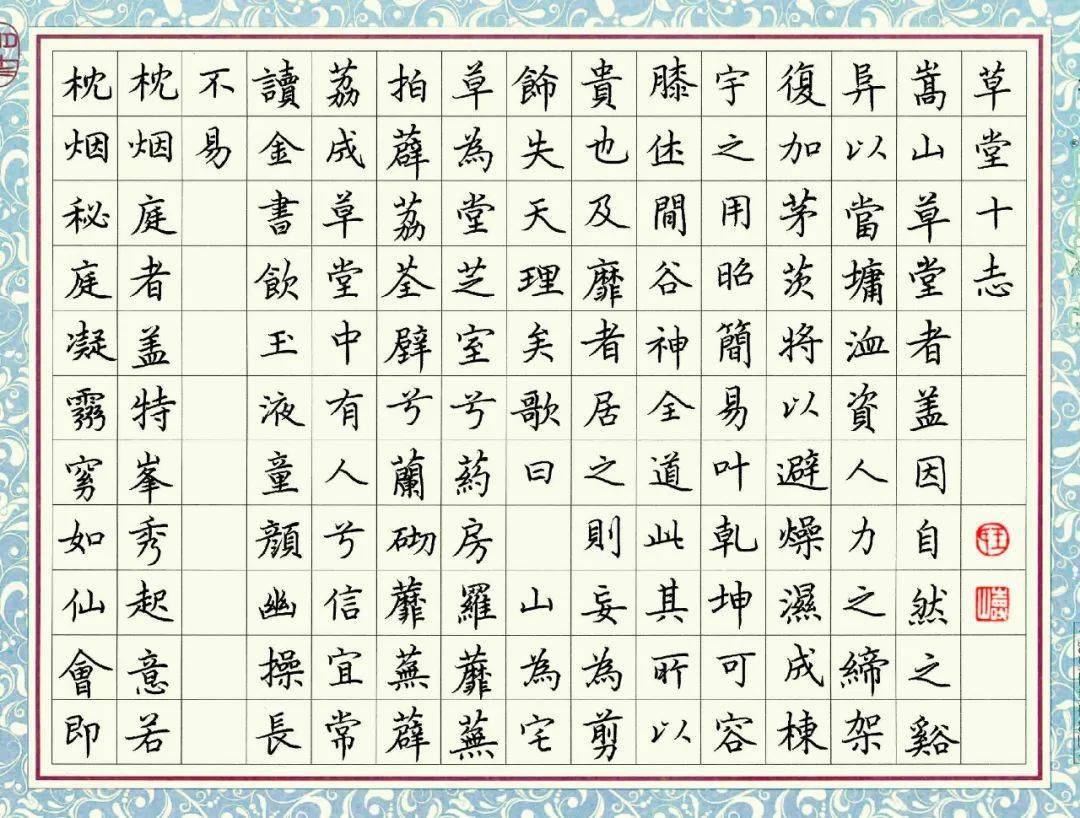 草堂十志
嵩山草堂者盖因自然之谿
阜以當墉洫資人力之締架
復加茅茨将以避燥濕成棟
宇之用昭簡易叶乾坤可容
膝休閒谷神全道此其所以
貴也及靡者居之則妄為剪
飾失天理矣歌曰 山為宅
草為堂芝室兮葯房羅蘼蕪
拍薜荔荃壁兮蘭砌蘼蕪薜
荔成草堂中有人兮信宜常
讀金書飲玉液童顔幽操長
不易
枕烟庭者盖特峯秀起意若
枕烟秘庭凝霧窮如仙會即